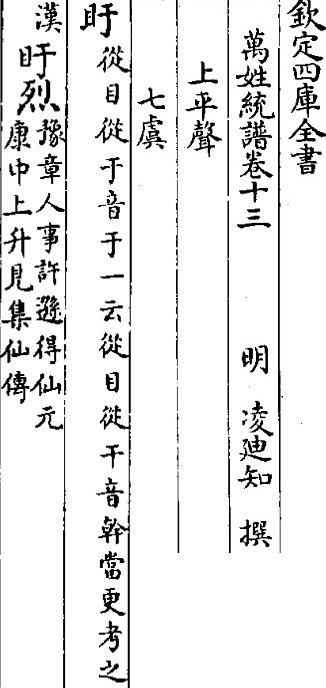 欽定四庫全書
萬姓統譜卷十三　明　凌迪知　撰
上平聲
七虞
盱從目從于音于一云從目從干音幹當更考之
漢
盱烈豫章人事許遜得仙元
康中上升見集仙傳